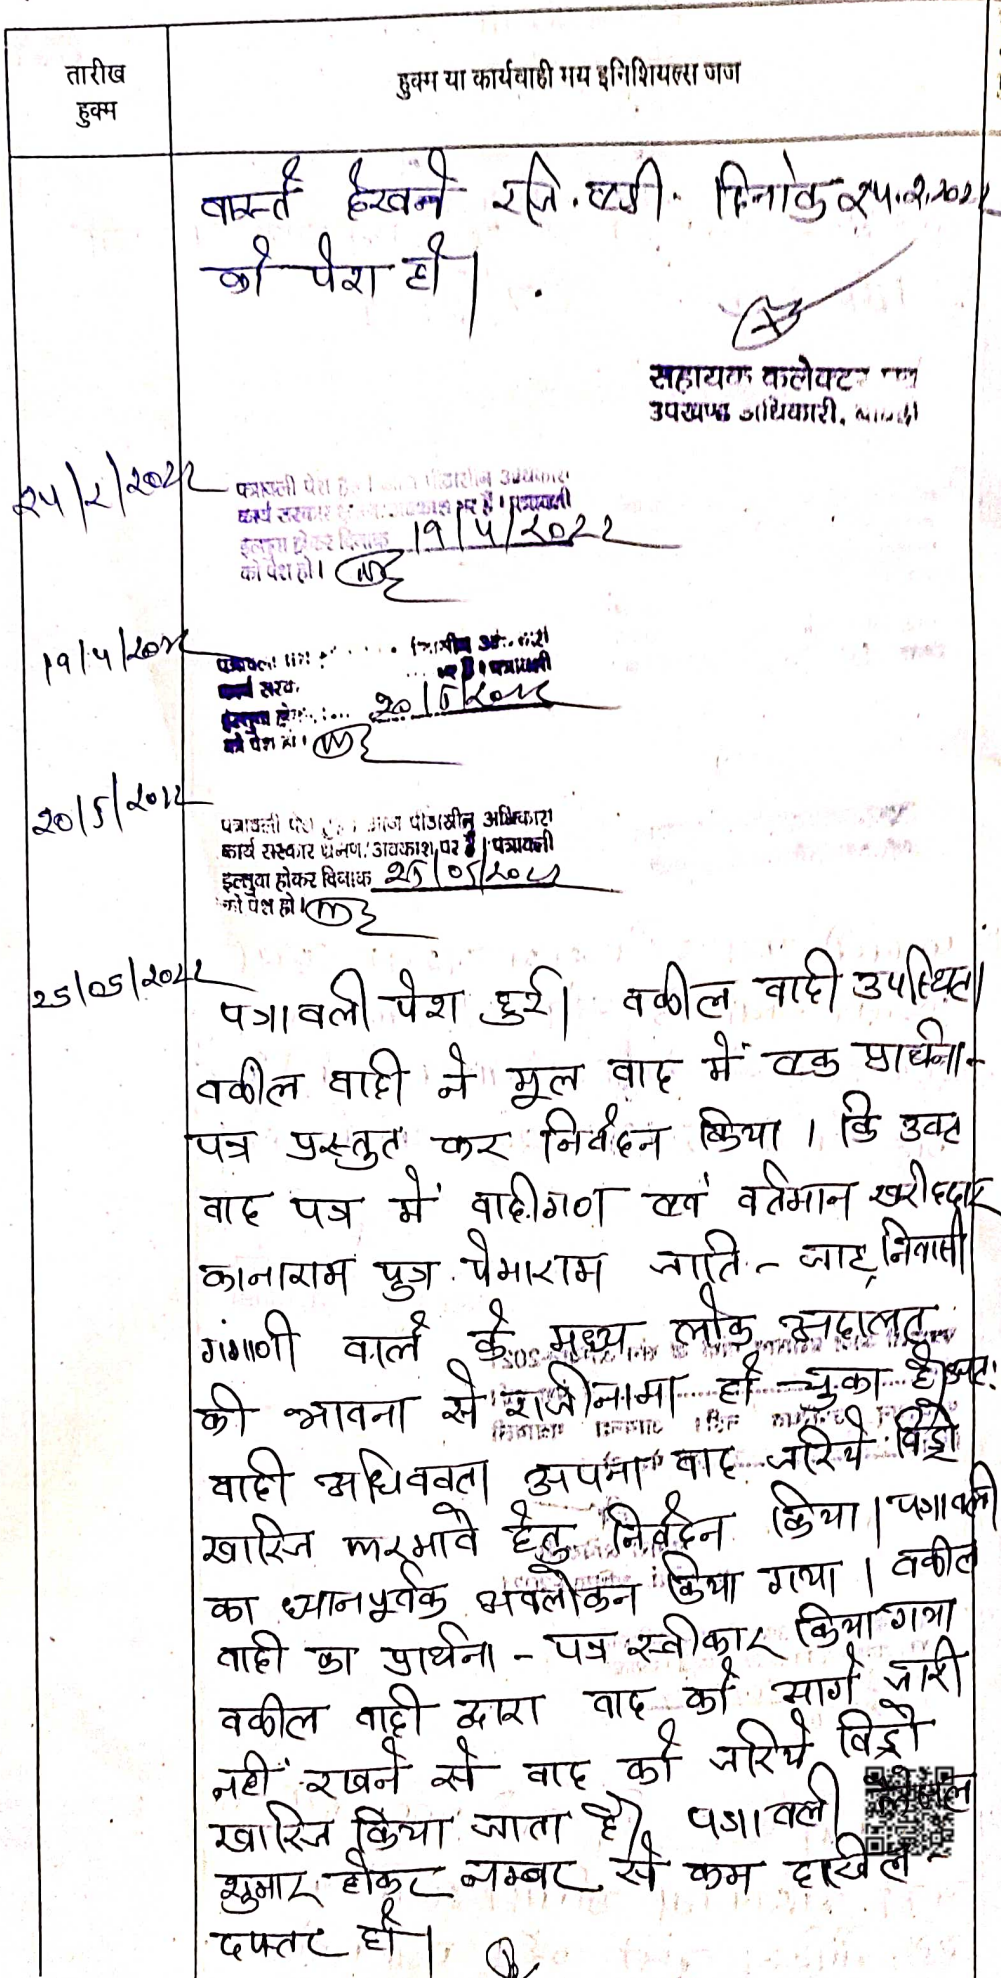 तारीख
हुक्म
हुक्म या कार्यवाही मय इनिशियल्स जज
वास्ते देखने रजि. एडी. दिनांक 24.2.2022
को पेश हो।
सहायक कलेक्टर
उपखण्ड अधिकारी,
24/2/2022
पत्रावली पेश पीठासीन
कार्य सरकार पर है। पत्रावली
इल्तुवा होकर दिनांक 19/4/2022
को पेश हो।
19/4/2022
पत्रावली
कार्य पर है। पत्रावली
इल्तुवा 20/5/2022
को पेश हो।
20/5/2022
पत्रावली पेश आज पीठासीन अधिकारी
कार्य सरकार भ्रमण/अवकाश पर है। पत्रावली
इल्तुवा होकर दिनांक 25/05/2022
को पेश हो।
25/05/2022
पत्रावली पेश हुई। वकील वादी उपस्थित।
वकील वादी ने मूल वाद में एक प्रार्थना-
पत्र प्रस्तुत कर निवेदन किया। कि उक्त
वाद पत्र में वादीगण एवं वर्तमान खरीददार
कानाराम पुत्र पेमाराम जाति - जाट, निवासी
गंगाणी वाले के मध्य लोक अदालत
की भावना से राजीनामा हो चुका है। अतः
वादी अधिवक्ता अपना वाद जरिये विड्रो
खारिज फरमावे हेतु निवेदन किया। पत्रावली
का ध्यानपूर्वक अवलोकन किया गया। वकील
वादी का प्रार्थना - पत्र स्वीकार किया गया
वकील वादी द्वारा वाद को आगे जारी
नहीं रखने से वाद को जरिये विड्रो
खारिज किया जाता है। पत्रावली फैसल
शुमार होकर नम्बर से कम दाखिल
दफ्तर हो।